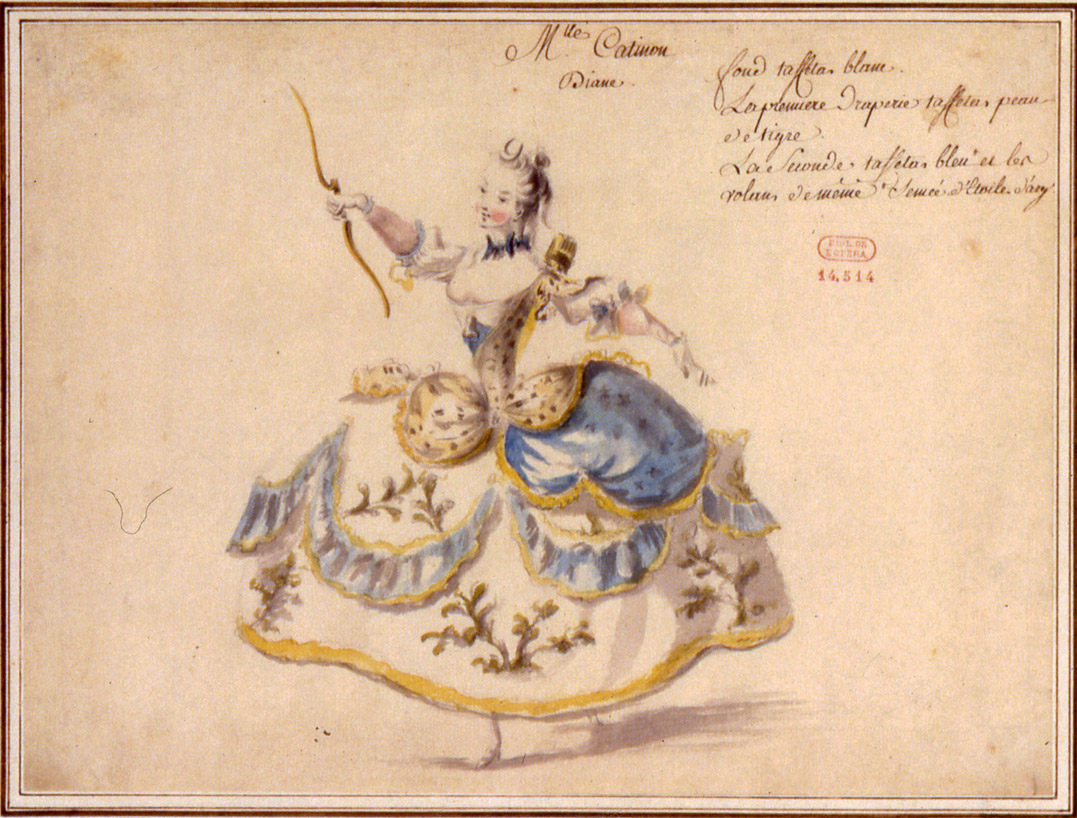 Mlle Catinon
Diane.
fond taffetas blanc.
La premiere Draperie taffetas peau
de tigre.
La Seconde taffetas bleu et les
volans de même Semée d'Etoile d'arg
BIBL. DE
L'OPERA
14.514